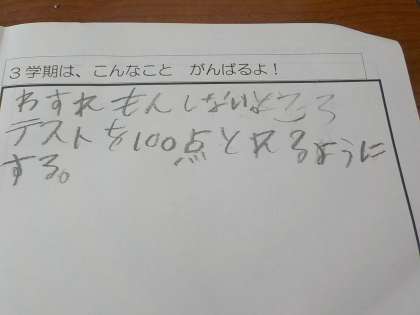 3学期は、こんなこと がんばるよ！
わすれもんしないところ
テストを100点とれるように
する。